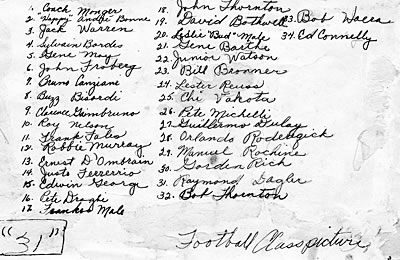 1. Coach Monger
2. "Happy" Andre Bonne
3. Jack Warren
4. Sylvain Bordes
5. Gene Mayo
6. John Froberg
7. Bruno Canziani
8. Buzz Bisordi
9. Clarence Gimbruno
10. Roy Nelson
11. Frank Fales
12. Robbie Murray
13. Ernest D'Ombrain
14. Justo Ferrerrio
15. Edwin George
16. Pete Draghi
17. Frankos Male
"31"
18. John Thornton
19. David Bothwell
20. Leslie "Bud" Male
21. Gene Barthe
22. Junior Watson
23. Bill Brommer
24. Lester Reuss
25. Chi Vakota
26. Pete Michelli
27. Guillermo Dulay
28. Orlando
29. Manuel Rochine
30. Gordon Rich
31. Raymond Dagler
32. Bob Thornton
33. Bob Wacea
34. Ed Connelly
Football Class picture